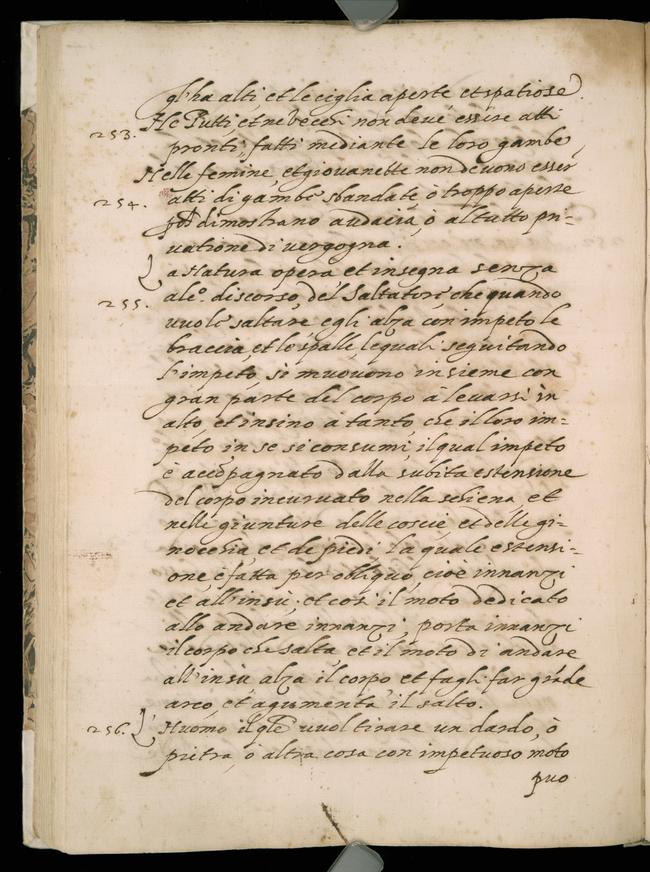 gl'ha alti et le ciglia aperte et spatiose.
253. Ne Putti et ne vecchi non deve essere atti
pronti, fatti mediante le loro gambe
254. Nelle femine, et giovanette non devono esser
atti di gambe sbandate, ò troppo aperte
dimostrano audacia, ò al tutto pri=
vatione di vergogna.
255. La Natura opera et insegna senza
alc.º discorso, del Saltatore che quando
vuole saltare egli alza con impeto le
braccia, et le spalle, le quali seguitando
l'impeto, si muovono insieme con
gran parte del corpo à levarsi in
alto, et insino à tanto, che il loro im=
peto in se si consumi, il qual impeto
è accōpagnato dalla subita estensione
del corpo incurvato nella schiena, et
nelle giunture delle coscie, et delle gi=
nocchia et de piedi, la quale estensi=
one è fatta per obliquo, cioè innanzi
et all'insù; et cosi il moto dedicato
allo andare innanzi, porta innanzi
il corpo che salta et il moto di andare
all'insù alza il corpo et fagli far grāde
arco, et agumenta il salto.
256. L'Huomo il qle vuol tirare un dardo, ò
pietra, ò altra cosa con impetuoso moto
puo